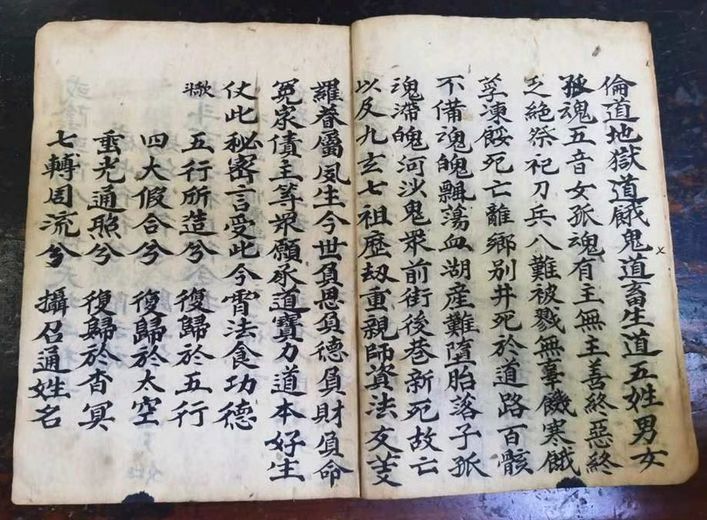 倫道地獄道餓鬼道畜生道五姓男女
孤魂五音女孤魂有主無主善終惡終
乏絕祭祀刀兵八難被戮無辜饑寒餓
莩凍餒死亡離鄉別井死於道路百骸
不備魂魄飄蕩血湖產難墮胎落子孤
魂滯魄河沙鬼眾前街後巷新死故亡
以及九玄七祖歷劫重親師資法友
羅眷屬夙生今世負恩負德負財負命
冤家債主等眾願承道寶力道本好生
仗此秘密言受此今宵法食功德
斗歌
五行所造兮 復歸於五行
四大假合兮 復歸於太空
重光通照兮 復歸於杳冥
七轉周流兮 攝召通姓名